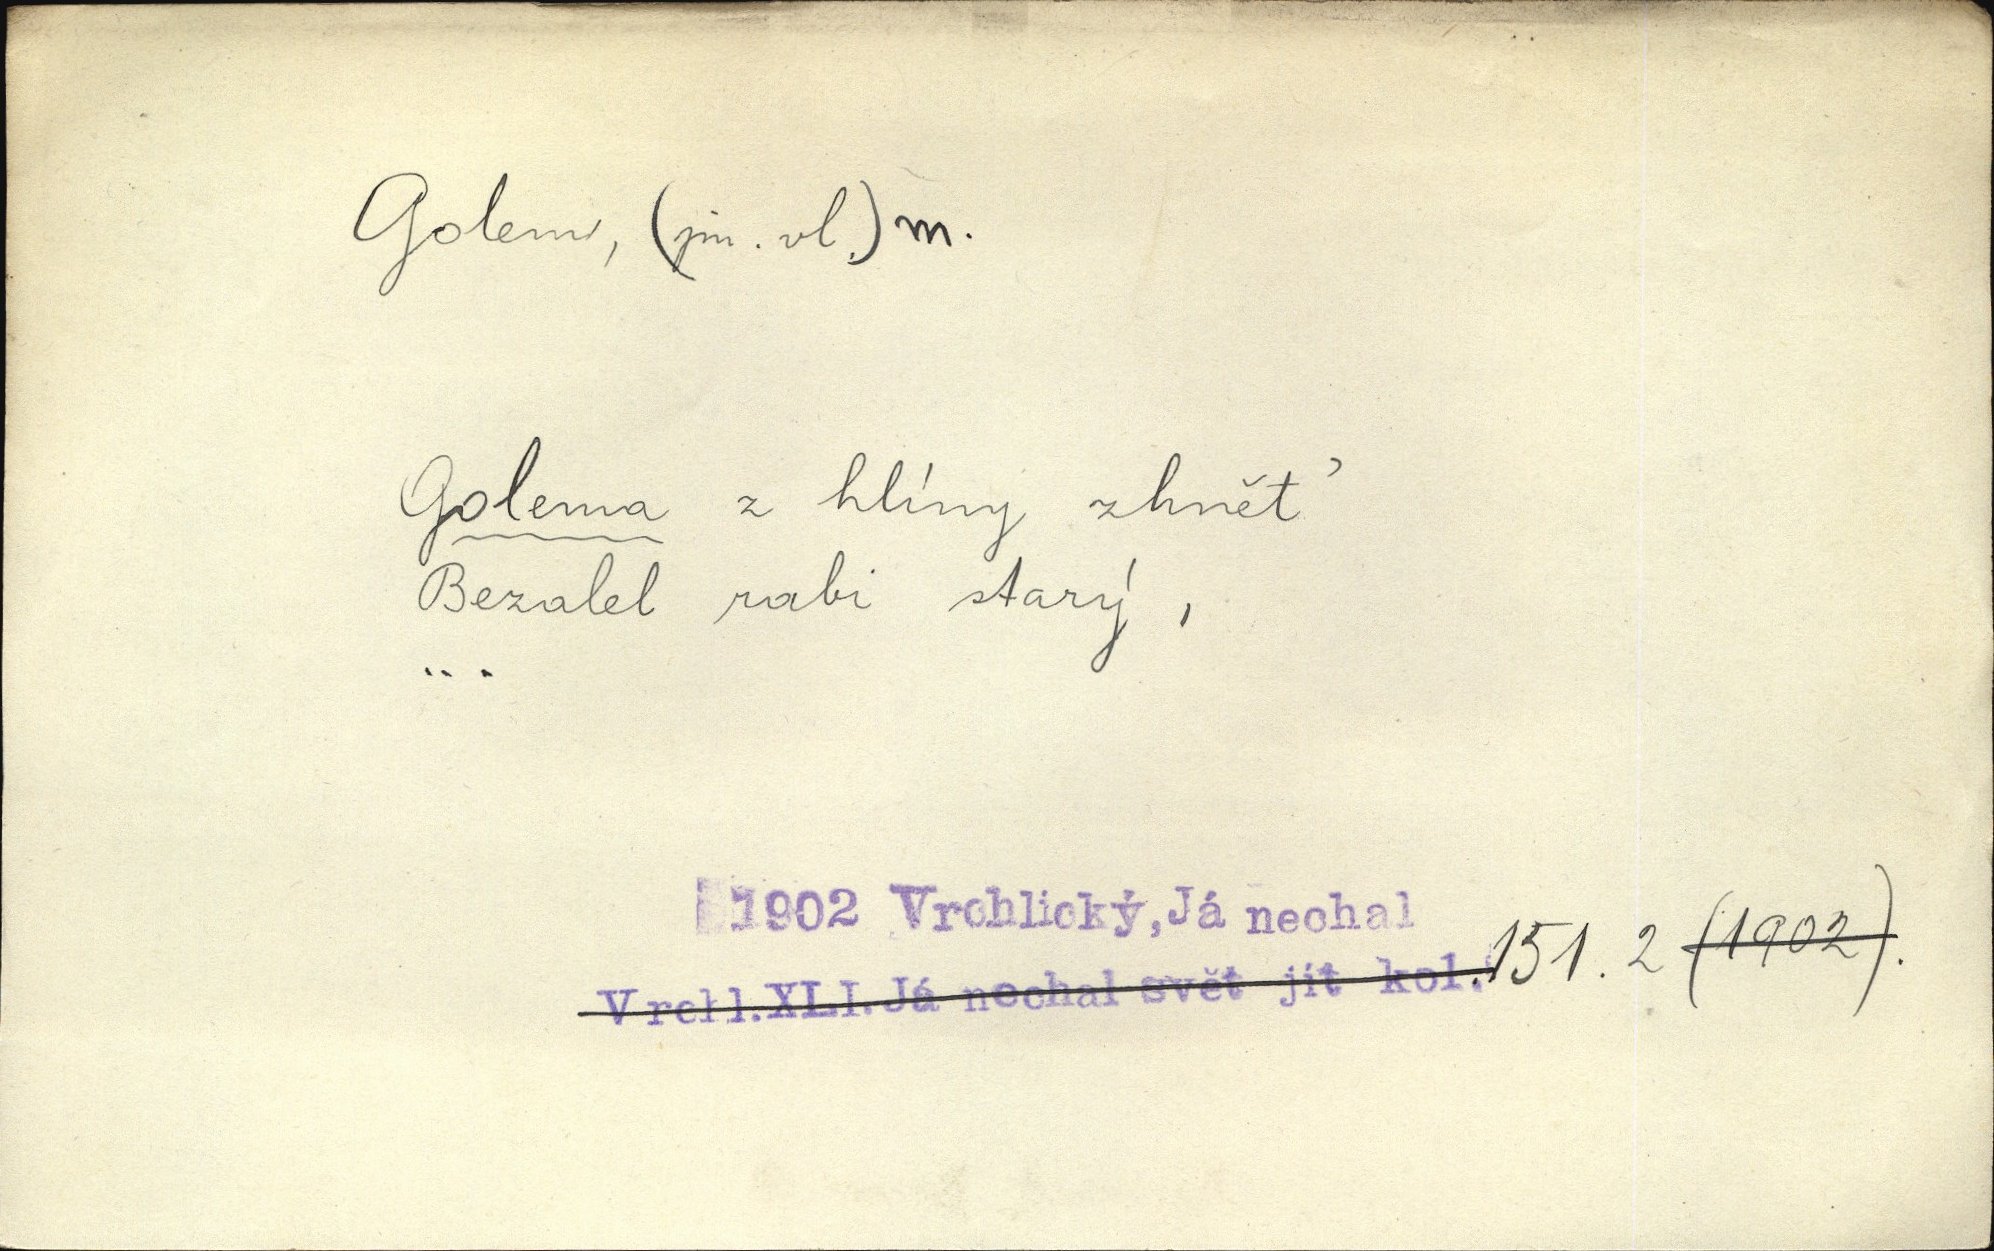 Golem, (jm. vl.) m.
Golema z hlíny zhnět'
Bezalel rabi starý,
...
1902 Vrchlický, Já nechal
Vrchl. XLI. Já nechal svět jít kol. 151. 2 (1902).